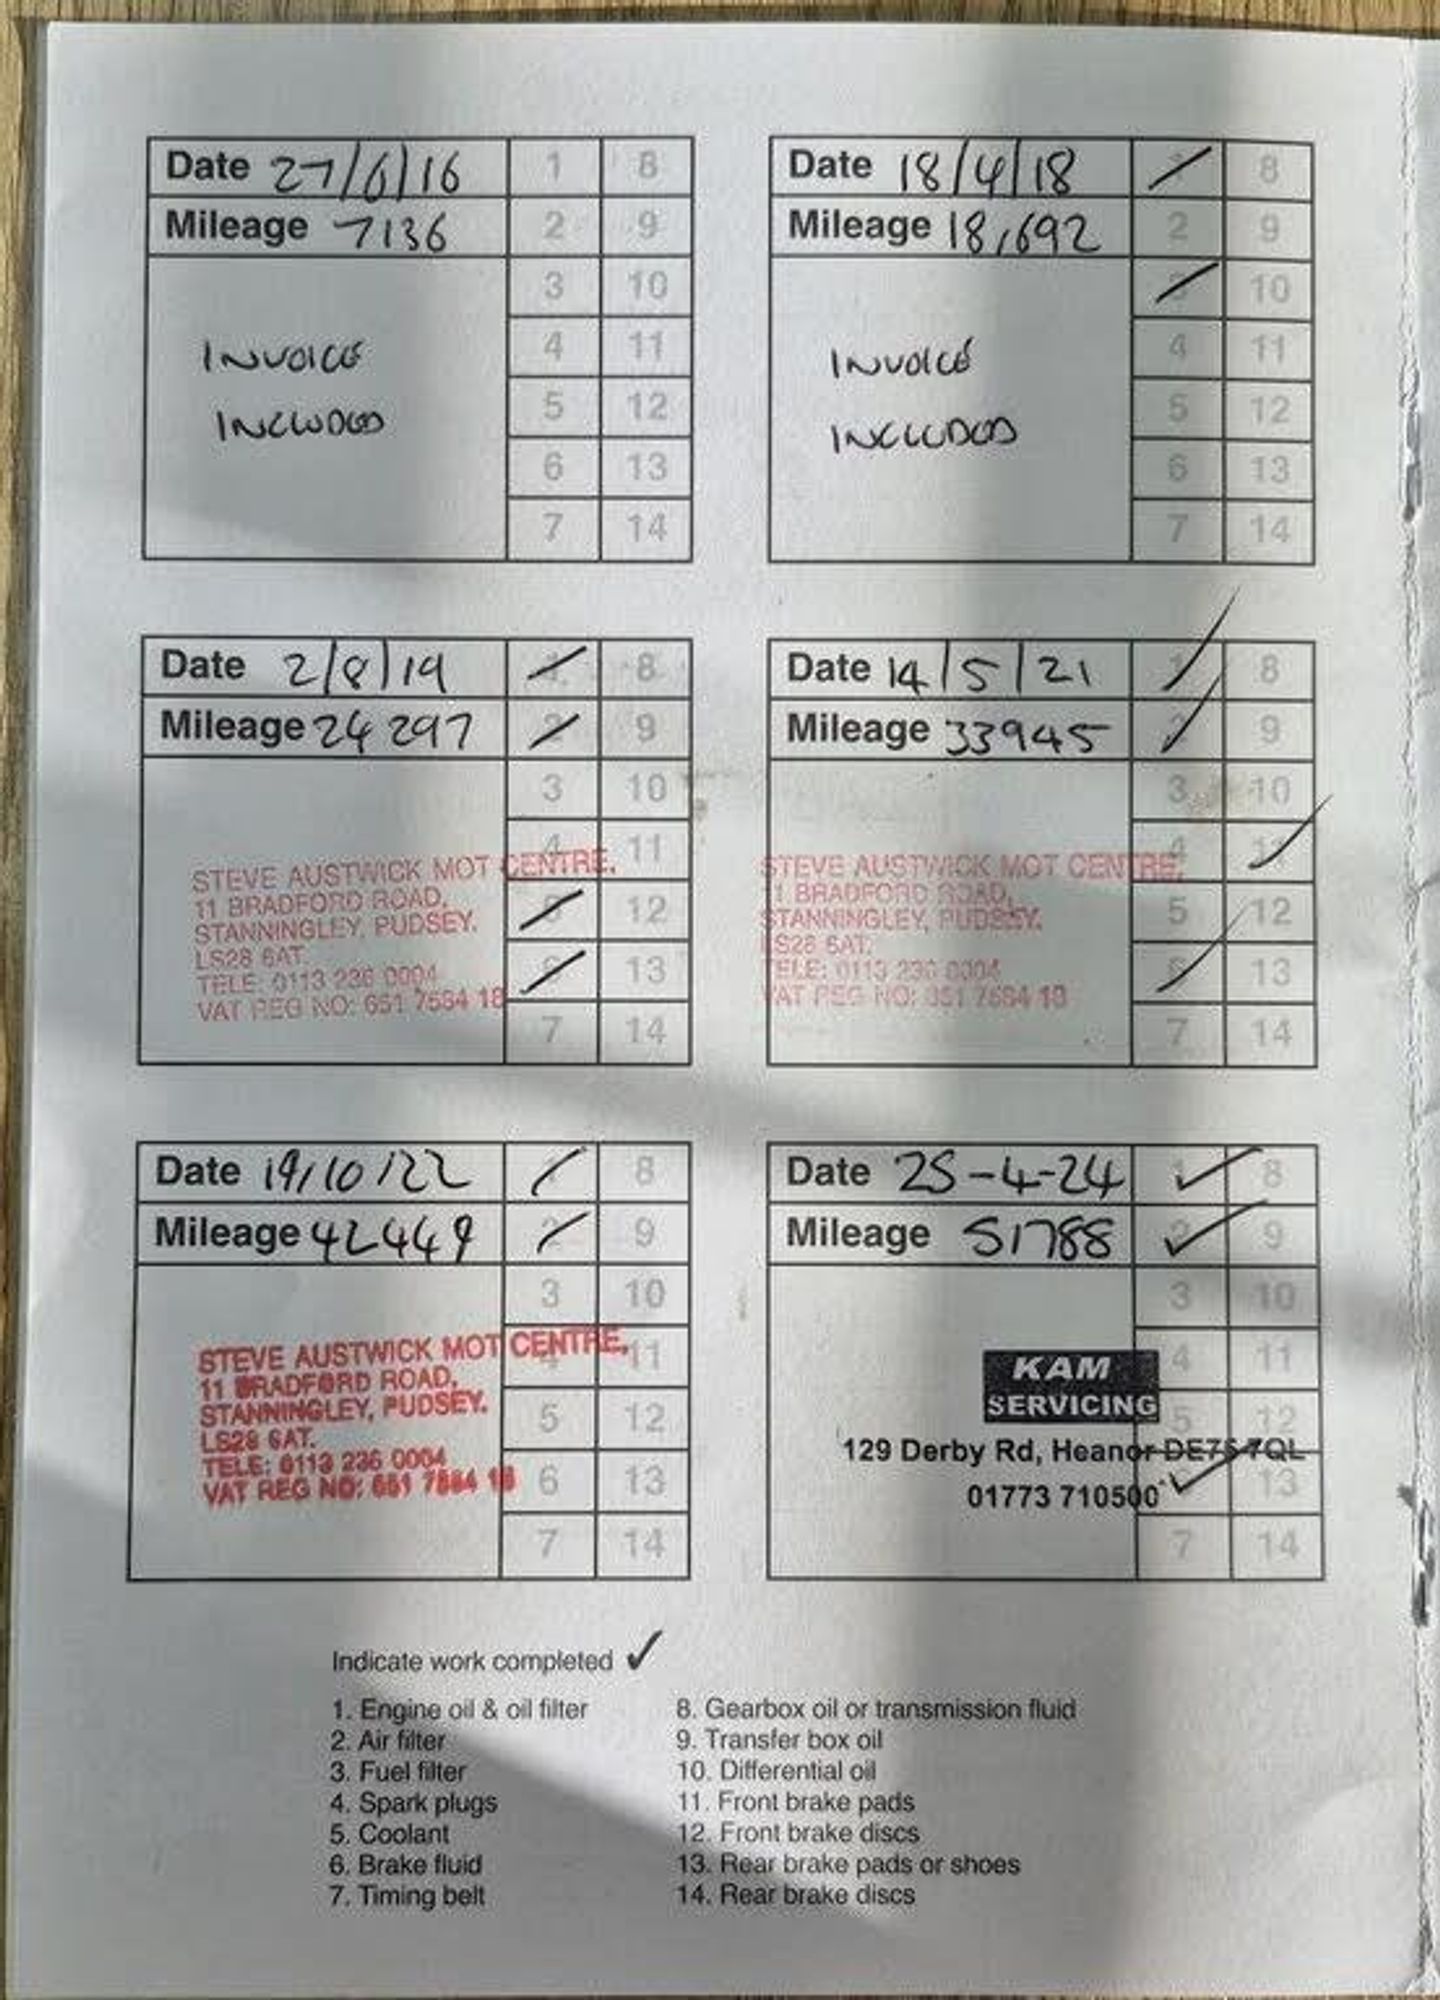 Date 27/6/16 1 8
Mileage 7136 2 9
3 10
INVOICE 4 11
INCLUDED 5 12
6 13
7 14
Date 18/4/18 1 8
Mileage 18,692 2 9
3 10
INVOICE 4 11
INCLUDED 5 12
6 13
7 14
Date 2/8/19 1 8
Mileage 24297 2 9
3 10
STEVE AUSTWICK MOT CENTRE. 4 11
11 BRADFORD ROAD, 5 12
STANNINGLEY, PUDSEY.
LS28 6AT. 6 13
TELE: 0113 236 0004
VAT REG NO: 651 7584 18
7 14
Date 14/5/21 1 8
Mileage 33945 2 9
3 10
STEVE AUSTWICK MOT CENTRE. 4 11
11 BRADFORD ROAD, 5 12
STANNINGLEY, PUDSEY.
LS28 6AT. 6 13
TELE: 0113 236 0004
VAT REG NO: 651 7584 18
7 14
Date 19/10/22 1 8
Mileage 42449 2 9
3 10
STEVE AUSTWICK MOT CENTRE. 4 11
11 BRADFORD ROAD, 5 12
STANNINGLEY, PUDSEY.
LS28 6AT.
TELE: 0113 236 0004 6 13
VAT REG NO: 651 7584 18
7 14
Date 25-4-24 1 8
Mileage 51788 2 9
3 10
KAM 4 11
SERVICING 5 12
129 Derby Rd, Heanor DE75 7QL
01773 710500 13
7 14
Indicate work completed ✓
1. Engine oil & oil filter
2. Air filter
3. Fuel filter
4. Spark plugs
5. Coolant
6. Brake fluid
7. Timing belt
8. Gearbox oil or transmission fluid
9. Transfer box oil
10. Differential oil
11. Front brake pads
12. Front brake discs
13. Rear brake pads or shoes
14. Rear brake discs